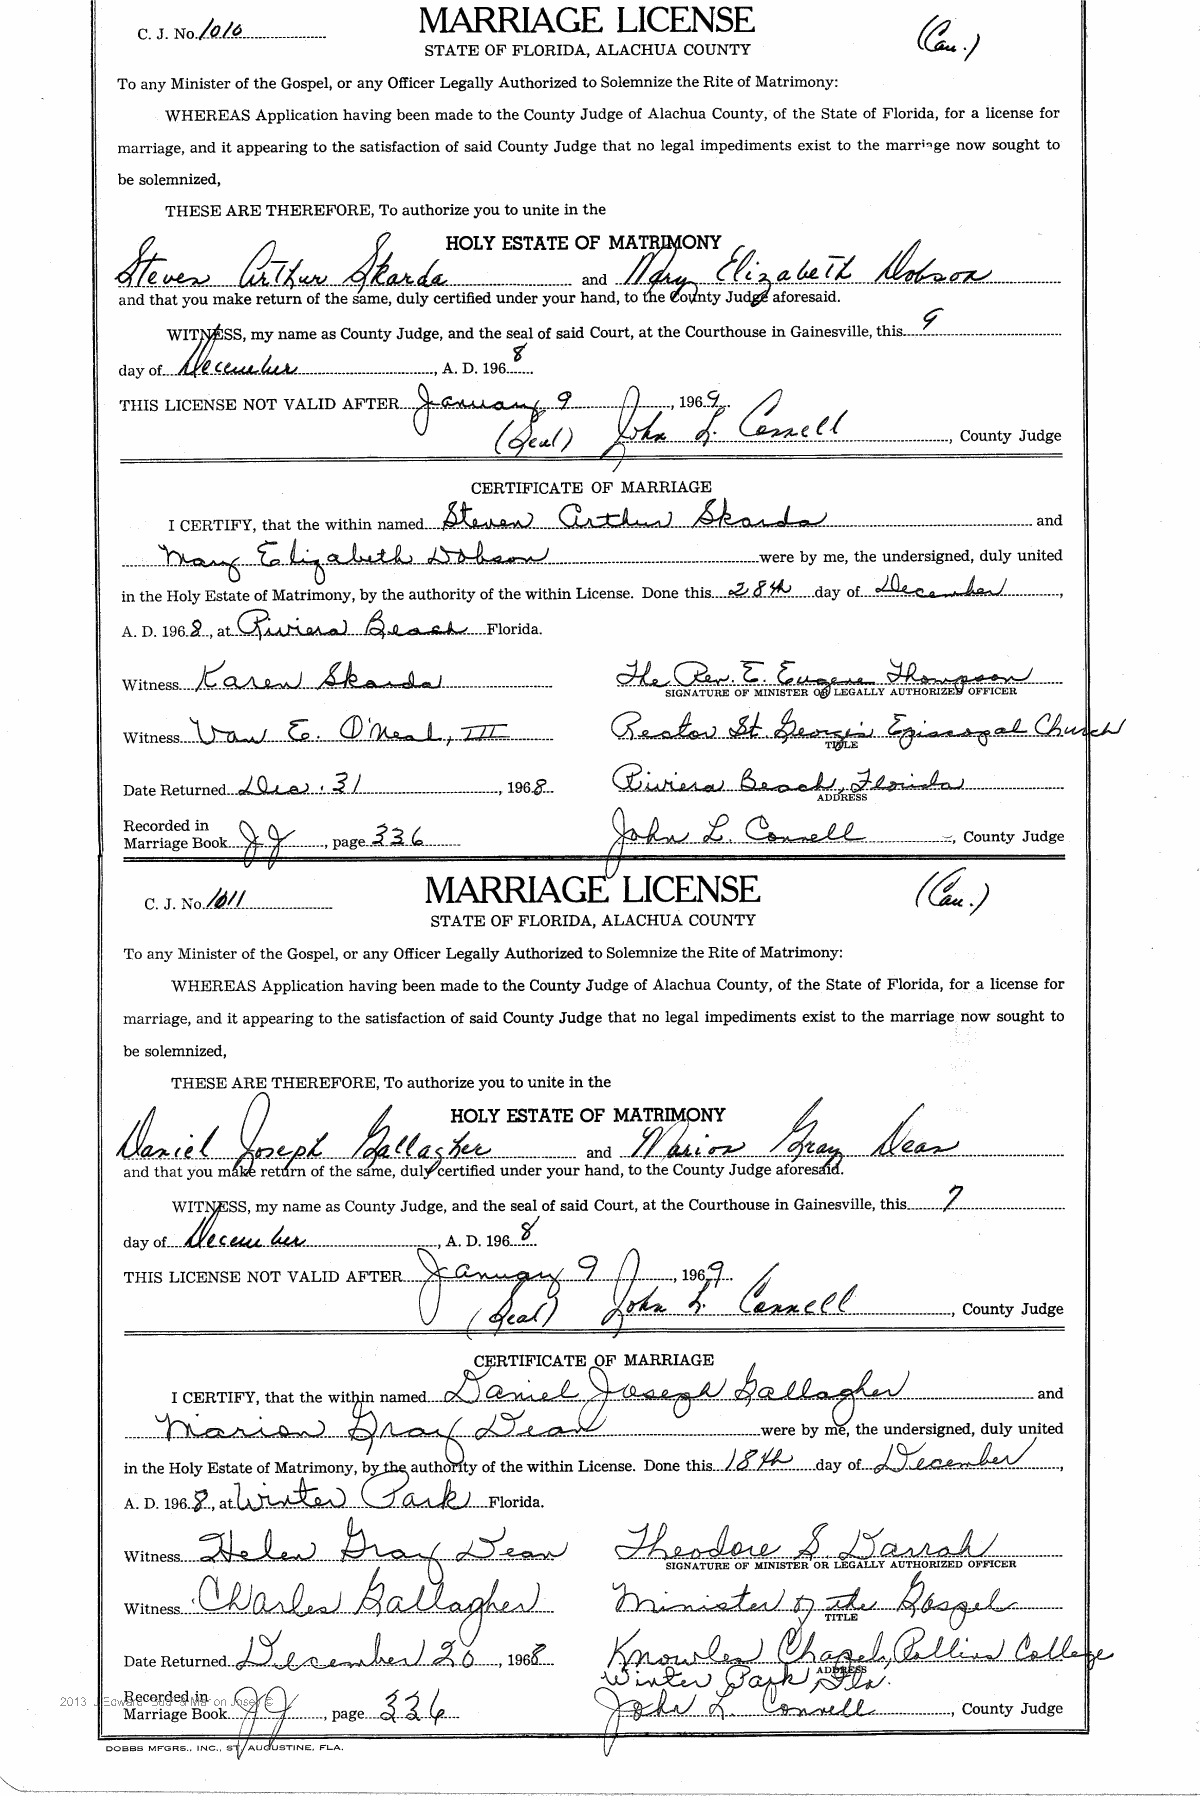 C. J. No. 1010
MARRIAGE LICENSE
(Cau.)
STATE OF FLORIDA, ALACHUA COUNTY
To any Minister of the Gospel, or any Officer Legally Authorized to Solemnize the Rite of Matrimony:
WHEREAS Application having been made to the County Judge of Alachua County, of the State of Florida, for a license for
marriage, and it appearing to the satisfaction of said County Judge that no legal impediments exist to the marriage now sought to
be solemnized,
THESE ARE THEREFORE, To authorize you to unite in the
HOLY ESTATE OF MATRIMONY
Steven Arthur Skarda and Mary Elizabeth Dobson
and that you make return of the same, duly certified under your hand, to the County Judge aforesaid.
WITNESS, my name as County Judge, and the seal of said Court, at the Courthouse in Gainesville, this 9
day of December, A. D. 1968
THIS LICENSE NOT VALID AFTER January 9, 1969
(Seal) John L. Connell, County Judge
CERTIFICATE OF MARRIAGE
I CERTIFY, that the within named Steven Arthur Skarda and
Mary Elizabeth Dobson were by me, the undersigned, duly united
in the Holy Estate of Matrimony, by the authority of the within License. Done this 28th day of December,
A. D. 1968, at Riviera Beach Florida.
Witness Karen Skarda The Rev. E. Eugene Thompson
SIGNATURE OF MINISTER OR LEGALLY AUTHORIZED OFFICER
Witness Van E. O'Neal, III Rector St. Georges Episcopal Church
TITLE
Date Returned Dec. 31, 1968 Riviera Beach, Florida
ADDRESS
Recorded in
Marriage Book JJ, page 336 John L. Connell, County Judge
C. J. No. 1011
MARRIAGE LICENSE
(Cau.)
STATE OF FLORIDA, ALACHUA COUNTY
To any Minister of the Gospel, or any Officer Legally Authorized to Solemnize the Rite of Matrimony:
WHEREAS Application having been made to the County Judge of Alachua County, of the State of Florida, for a license for
marriage, and it appearing to the satisfaction of said County Judge that no legal impediments exist to the marriage now sought to
be solemnized,
THESE ARE THEREFORE, To authorize you to unite in the
HOLY ESTATE OF MATRIMONY
Daniel Joseph Gallagher and Marion Gray Dean
and that you make return of the same, duly certified under your hand, to the County Judge aforesaid.
WITNESS, my name as County Judge, and the seal of said Court, at the Courthouse in Gainesville, this 7
day of December, A. D. 1968
THIS LICENSE NOT VALID AFTER January 9, 1969
(Seal) John L. Connell, County Judge
CERTIFICATE OF MARRIAGE
I CERTIFY, that the within named Daniel Joseph Gallagher and
Marion Gray Dean were by me, the undersigned, duly united
in the Holy Estate of Matrimony, by the authority of the within License. Done this 18th day of December,
A. D. 1968, at Winter Park Florida.
Witness Helen Gray Dean Theodore S. Darrah
SIGNATURE OF MINISTER OR LEGALLY AUTHORIZED OFFICER
Witness Charles Gallagher Minister of the Gospel
TITLE
Date Returned December 20, 1968 Knowles Chapel, Rollins College
ADDRESS
Winter Park, Fla.
Recorded in
Marriage Book JJ, page 336 John L. Connell, County Judge
DOBBS MFGRS., INC., ST. AUGUSTINE, FLA.